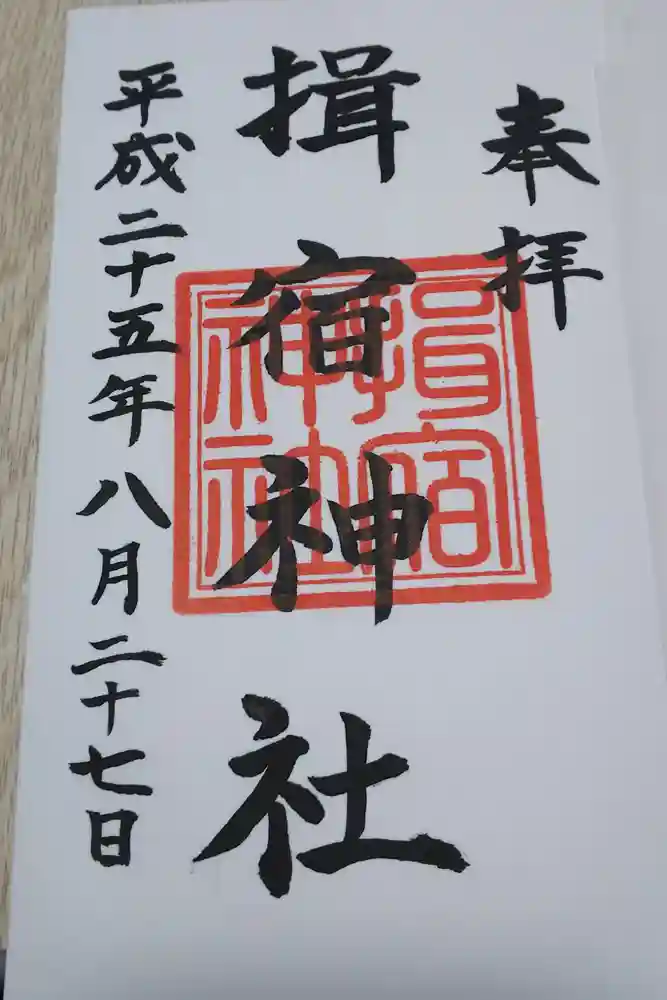 奉拝
揖宿神社
平成二十五年八月二十七日
揖宿
神社